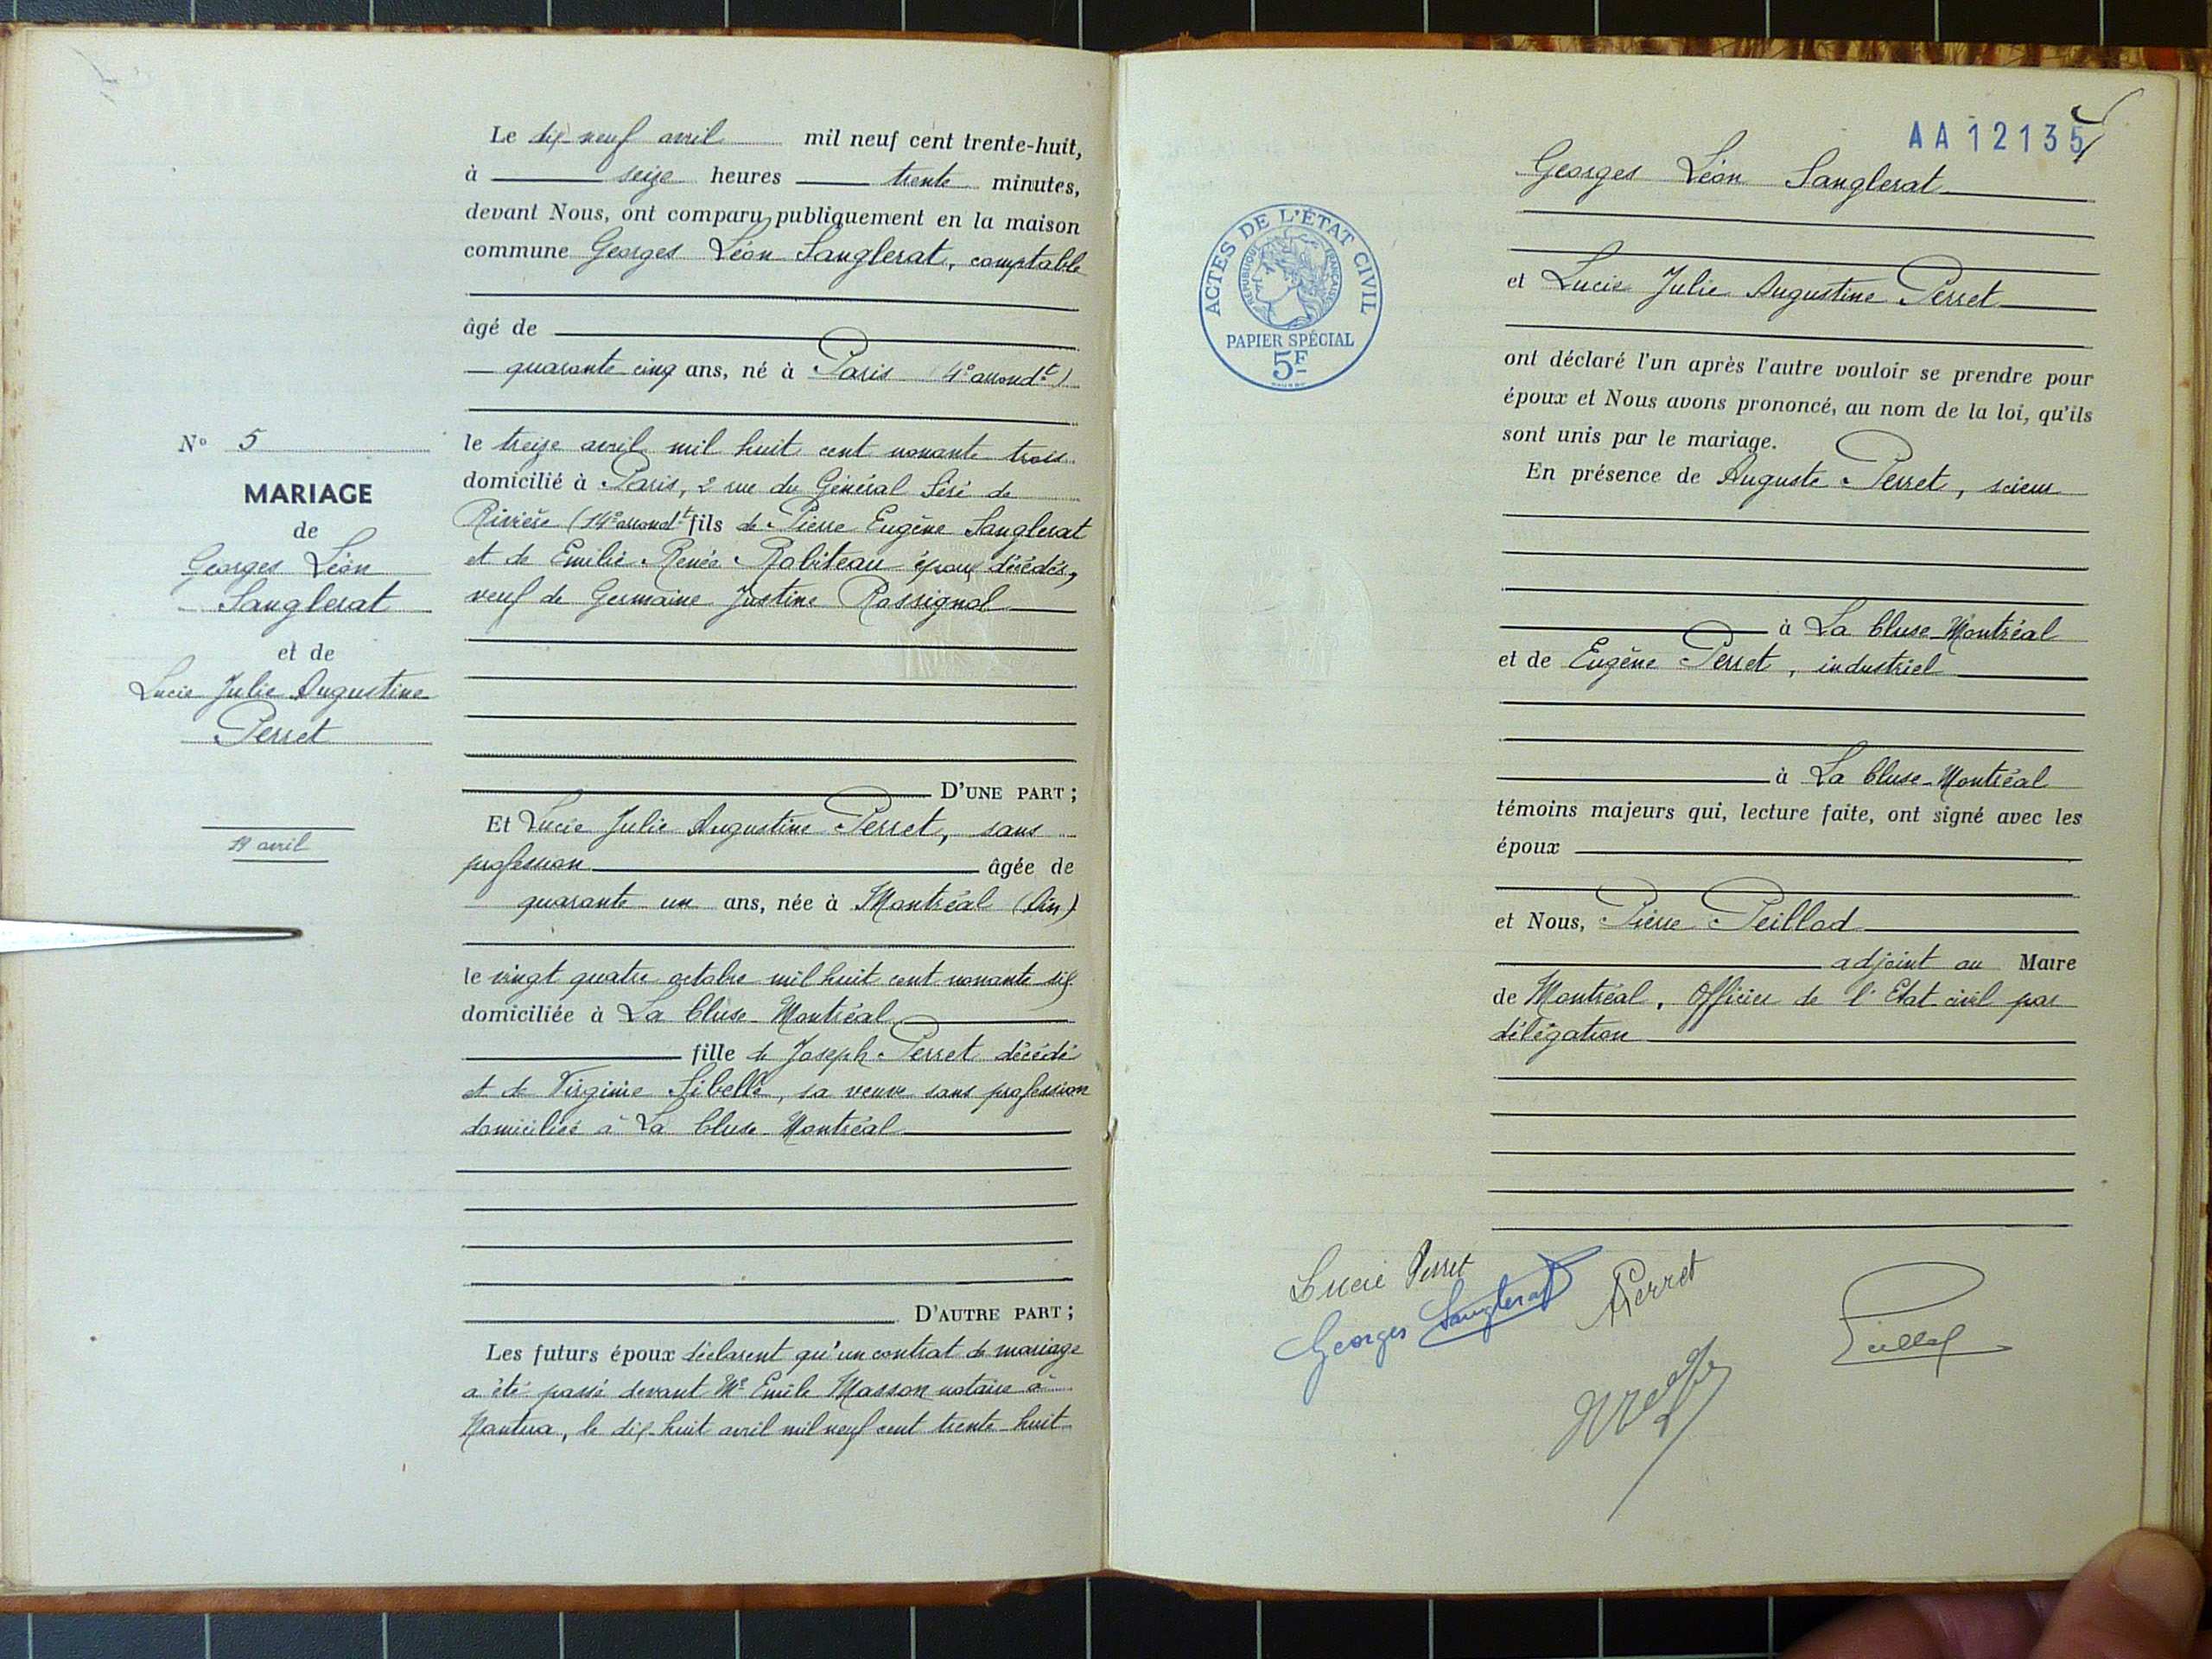 Le dix-neuf avril mil neuf cent trente-huit,
à seize heures trente minutes,
devant Nous, ont comparu publiquement en la maison
commune Georges Léon Sanglerat, comptable
âgé de
quarante cinq ans, né à Paris (4e arrondt)
le treize avril mil huit cent nonante trois
domicilié à Paris, 2 rue du Général Séré de
Rivière (14e arrondt fils de Pierre Eugène Sanglerat
et de Emilie Renée Robiteau époux décédés,
veuf de Germaine Justine Rossignol
D'UNE PART ;
Et Lucie Julie Augustine Perret, sans
profession âgée de
quarante un ans, née à Montréal (Ain)
le vingt quatre octobre mil huit cent nonante six
domiciliée à La Cluse-Montréal
fille de Joseph Perret décédé
et de Virginie Sibelle, sa veuve sans profession
domiciliée à La Cluse-Montréal
D'AUTRE PART ;
Les futurs époux déclarent qu'un contrat de mariage
a été passé devant Me Emile Masson notaire à
Nantua, le dix-huit avril mil neuf cent trente-huit
N° 5
MARIAGE
de
Georges Léon
Sanglerat
et de
Lucie Julie Augustine
Perret
19 avril
AA12135
Georges Léon Sanglerat
et Lucie Julie Augustine Perret
ont déclaré l'un après l'autre vouloir se prendre pour
époux et Nous avons prononcé, au nom de la loi, qu'ils
sont unis par le mariage.
En présence de Auguste Perret, scieur
à La Cluse-Montréal
et de Eugène Perret, industriel
à La Cluse-Montréal
témoins majeurs qui, lecture faite, ont signé avec les
époux
et Nous, Pierre Peillod
adjoint au Maire
de Montréal, Officier de l'Etat civil par
délégation
ACTES DE L'ÉTAT CIVIL
RÉPUBLIQUE FRANÇAISE
PAPIER SPÉCIAL
5F
Lucie Perret
Georges Sanglerat
APerret
Peillod